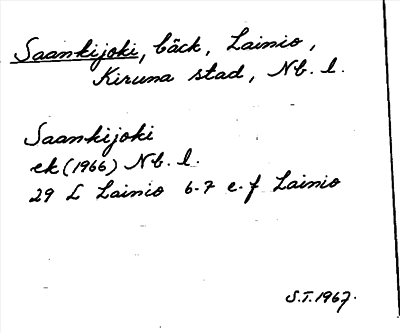 Saankijoki, bäck, Lainio,
Kiruna stad, Nb. l.
Saankijoki
ek (1966) Nb. l.
29 L Lainio 6-7 e-f Lainio
S.T. 1967.